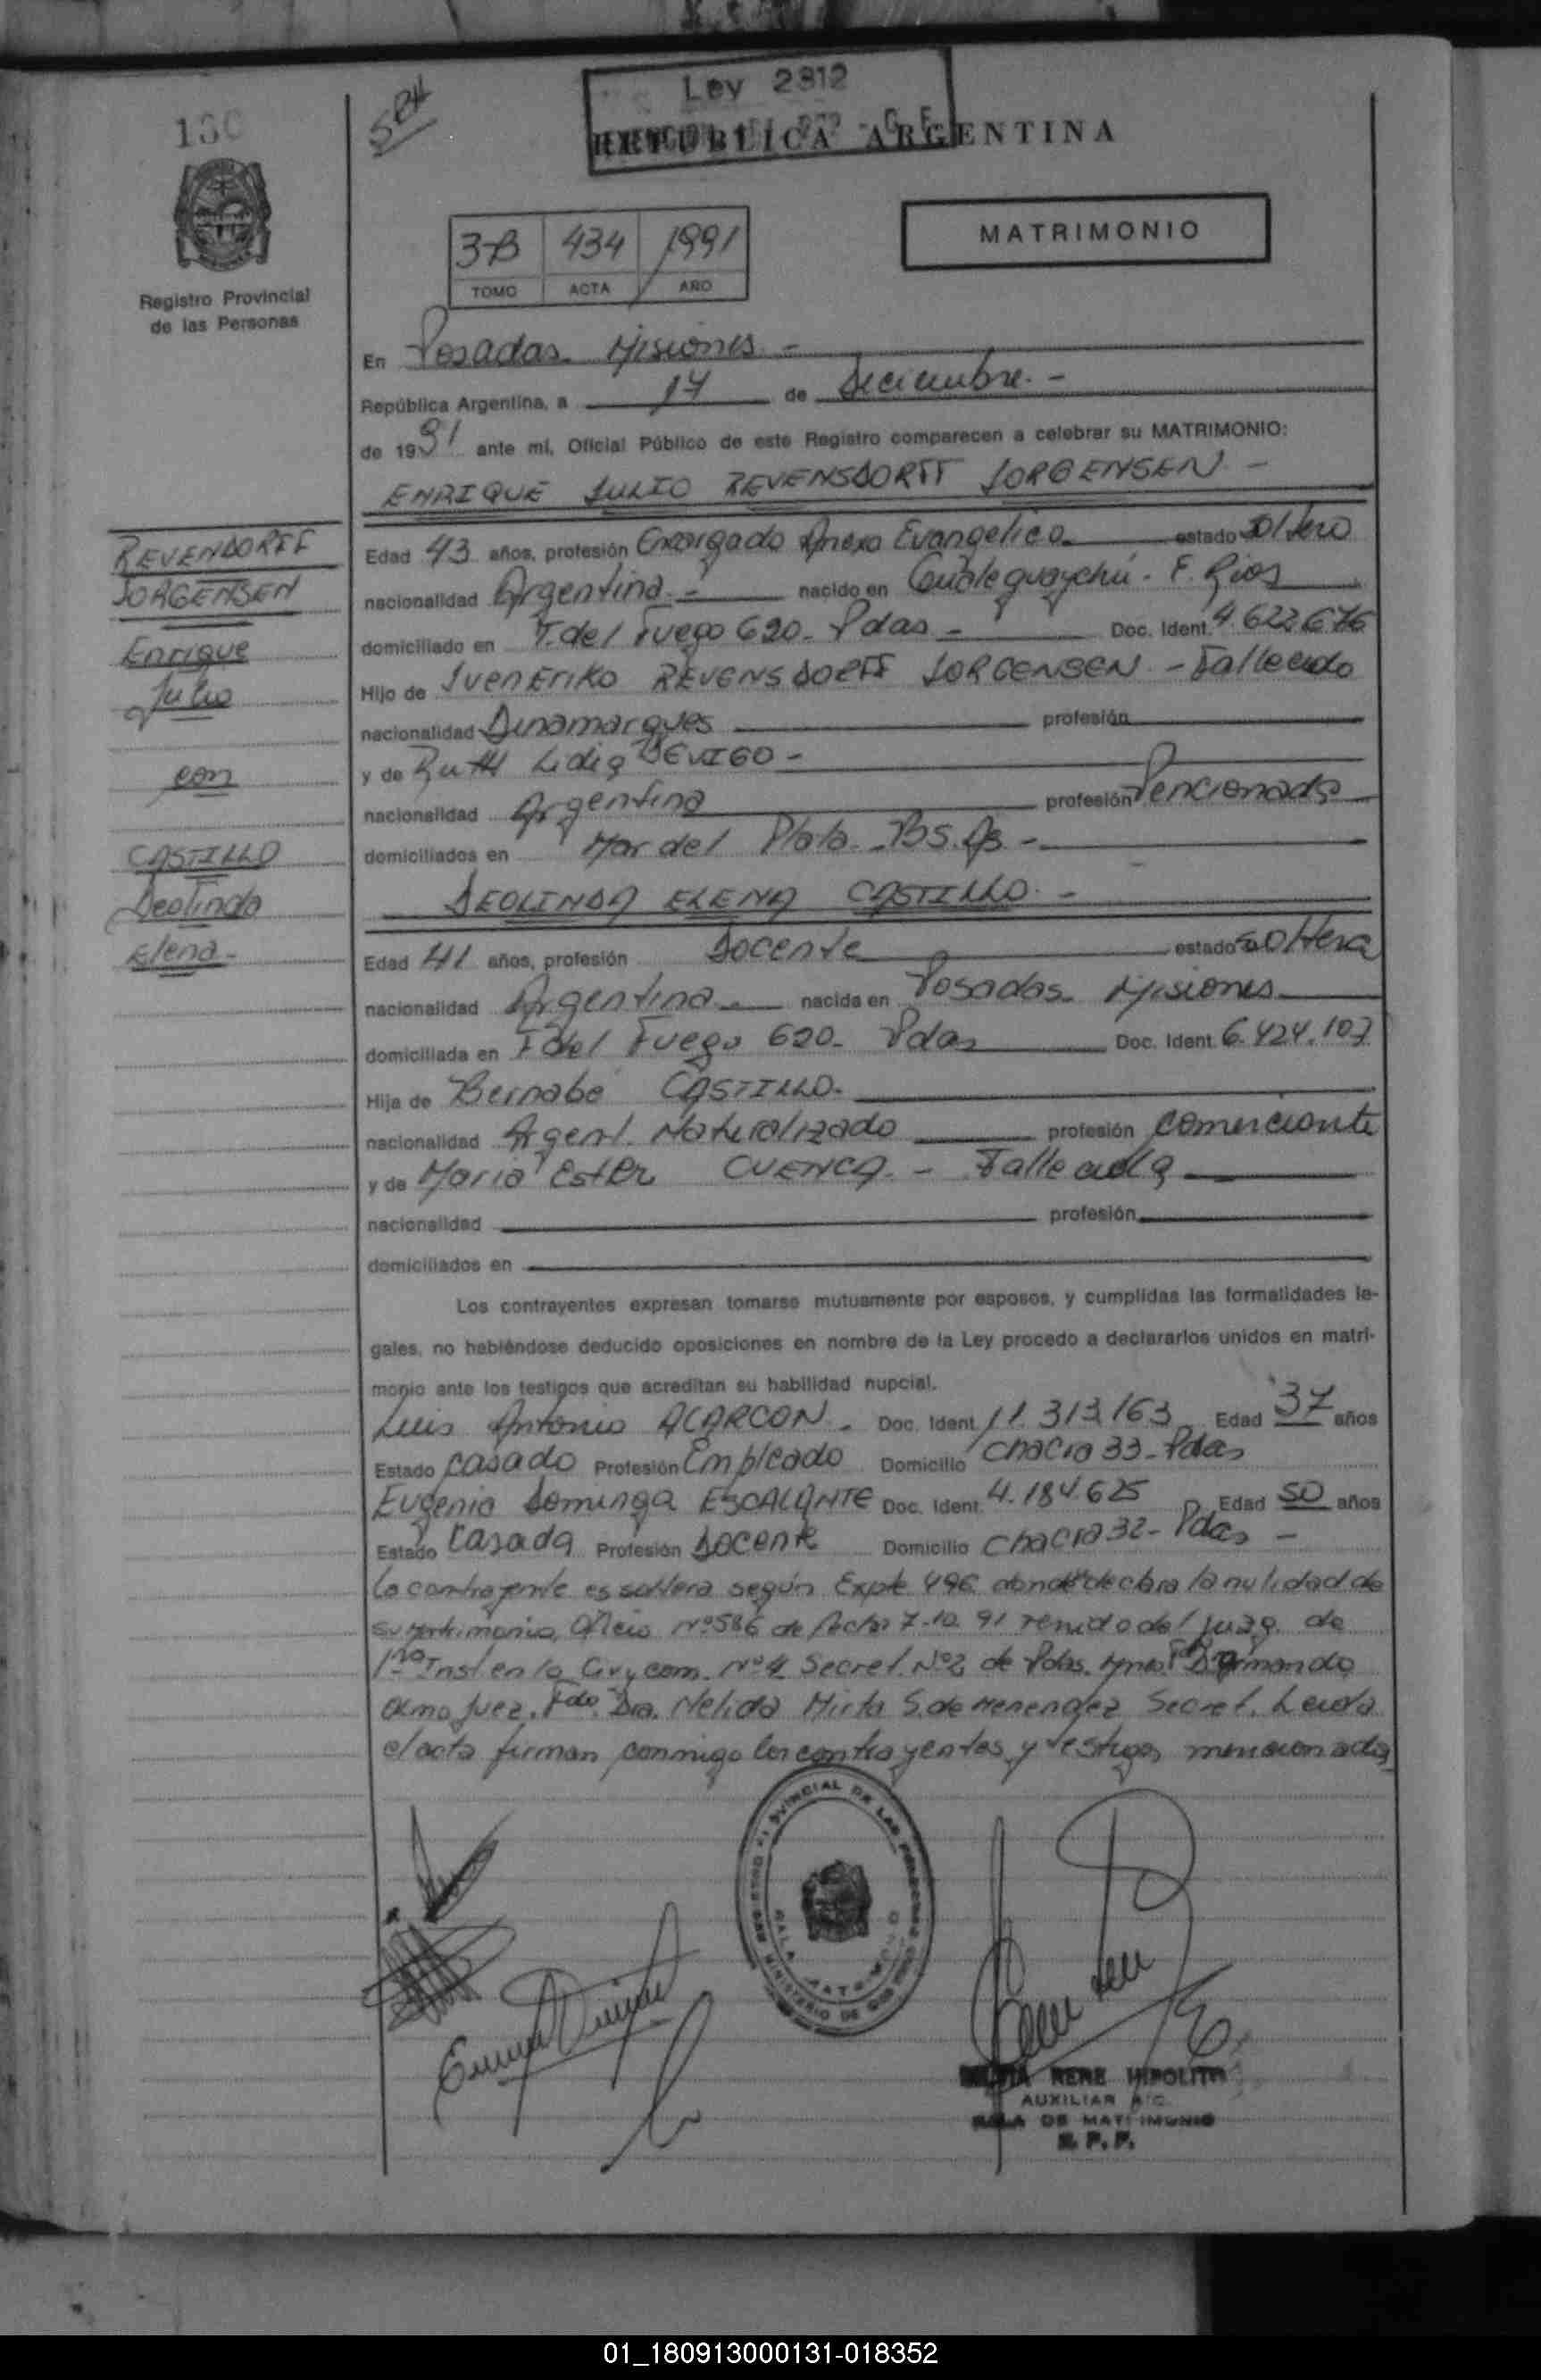 130
SRH
Ley 2812
REPUBLICA ARGENTINA
Registro Provincial
de las Personas
3-B 434 1991
TOMO ACTA AÑO
MATRIMONIO
En Posadas Misiones -
República Argentina, a 17 de Diciembre. -
de 1991 ante mi, Oficial Público de este Registro comparecen a celebrar su MATRIMONIO:
ENRIQUE JULIO REVENSDORFF JORGENSEN -
REVENDORFF
JORGENSEN
Enrique
Julio
con
CASTILLO
Deolinda
Elena -
Edad 43 años, profesión Encargado Anexo Evangelico estado soltero
nacionalidad Argentina - nacido en Gualeguaychú - E. Rios
domiciliado en T. del Fuego 620 - Pdas - Doc. Ident. 4.622.676
Hijo de Sven Eriko REVENSDORFF JORGENSEN - Fallecido
nacionalidad Dinamarques profesión
y de Ruth Lidia -
nacionalidad Argentina profesión Pencionada
domiciliados en Mar del Plata - Bs. As -
DEOLINDA ELENA CASTILLO. -
Edad 41 años, profesión Docente estado soltera
nacionalidad Argentina - nacida en Posadas. Misiones
domiciliada en T del Fuego 620 - Pdas Doc. Ident. 6.424.107
Hija de Bernabé CASTILLO.
nacionalidad Argent. Naturalizado profesión comerciante
y de Maria Ester CUENCA. - Fallecida
nacionalidad profesión
domiciliados en
Los contrayentes expresan tomarse mutuamente por esposos, y cumplidas las formalidades le-
gales, no habiéndose deducido oposiciones en nombre de la Ley procedo a declararlos unidos en matri-
monio ante los testigos que acreditan su habilidad nupcial.
Luis Antonio ALARCON. Doc. Ident. 11.313.163 Edad 37 años
Estado casado Profesión Empleado Domicilio Chacra 33 - Pdas
Eugenia Dominga ESCALANTE Doc. Ident. 4.184.625 Edad 50 años
Estado Casada Profesión Docente Domicilio Chacra 32 - Pdas -
La contrayente es soltera según Expte 496 donde declara la nulidad de
su matrimonio, Oficio Nº 586 de fecha 7-10-91 del Juzg. de
1ra Inst. en lo Civ y com. Nº 4 Secret. Nº 2 de Pdas. Mnes. Fdo Armando
Olmo Juez. Fdo. Dra. Nelida Mirta S. de Menendez Secret. Leida
el acta firman conmigo los contrayentes y testigos mencionados
REGISTRO PROVINCIAL DE LAS PERSONAS
SALA MATRIMONIO
MINISTERIO DE
RENE HIPOLITO
AUXILIAR A/C.
SALA DE MATRIMONIO
R. P. P.
01_180913000131-018352